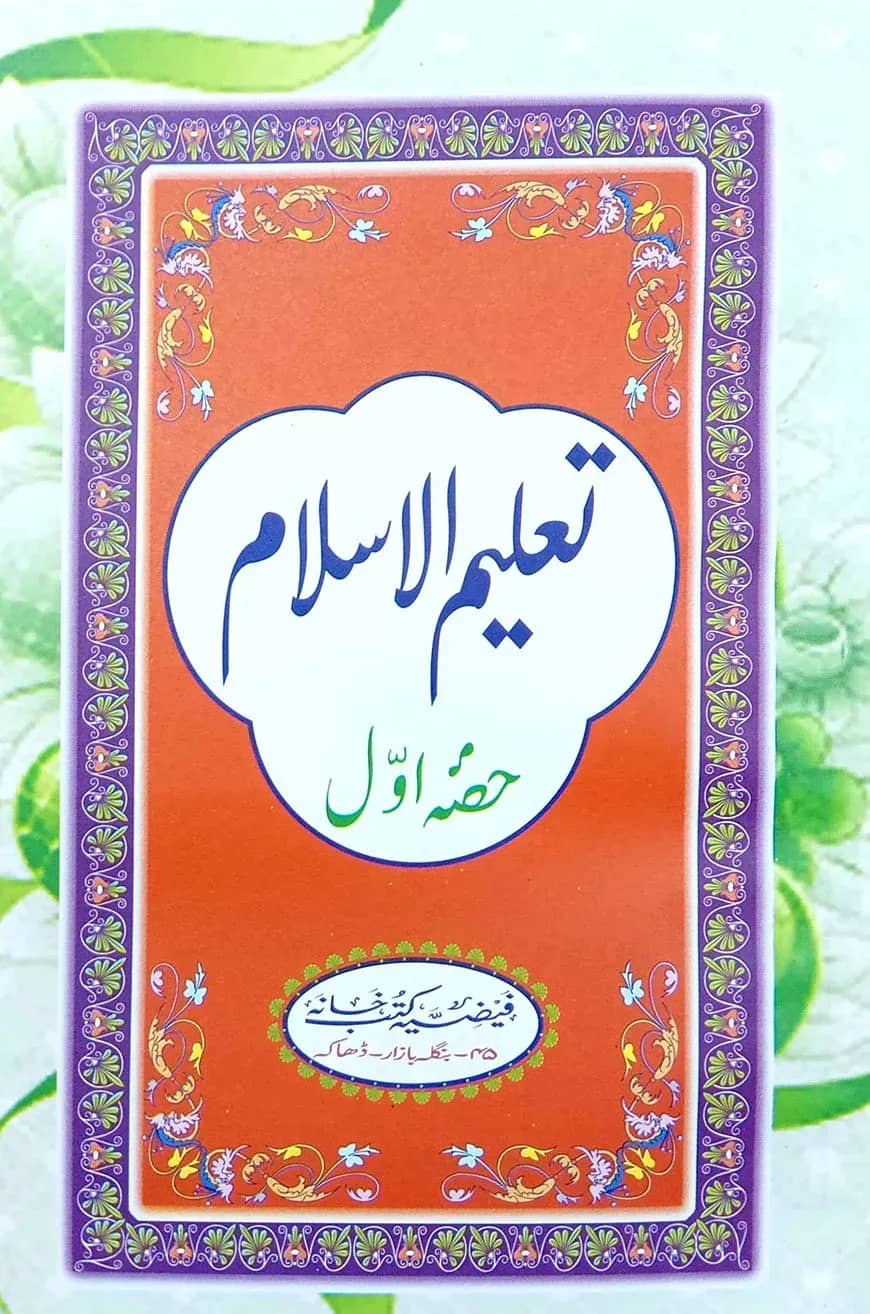 تعلیم الاسلام
حصۂ اوّل
فیضیہ کتب خانہ
۴۵- بنگلہ بازار- ڈھاکہ